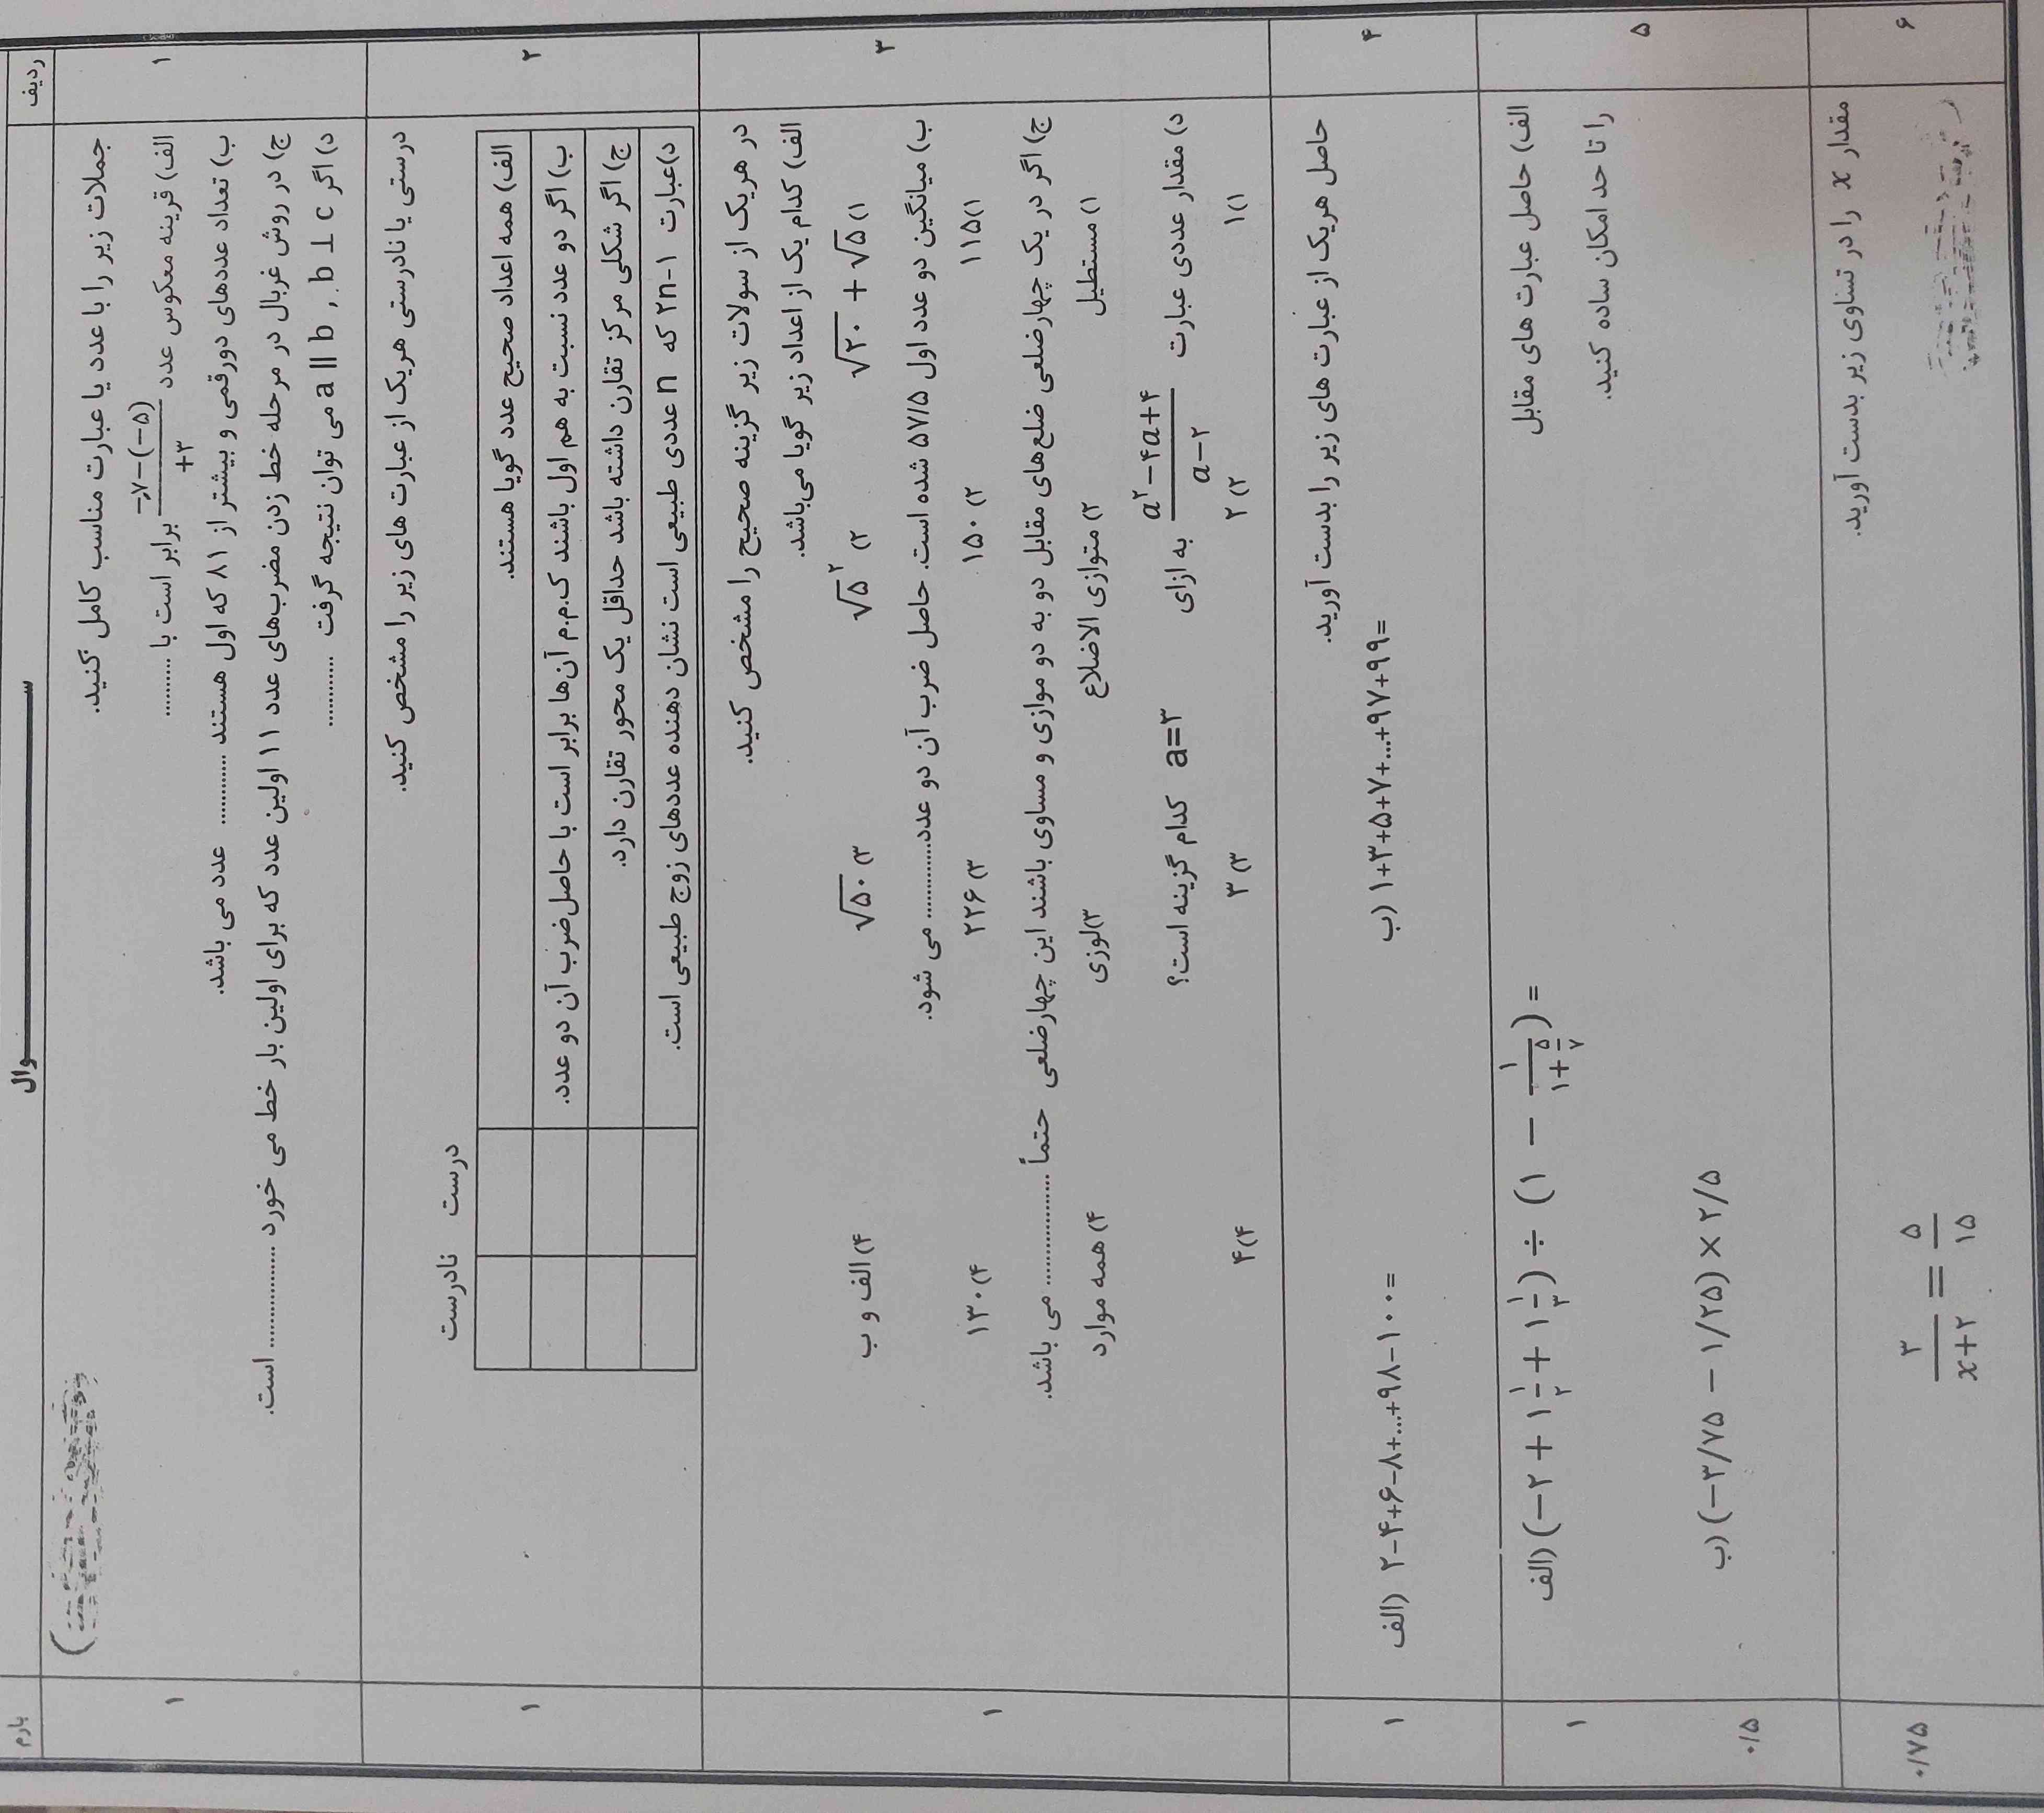 ردیف ســـــــوال بارم
۱ جملات زیر را با عدد یا عبارت مناسب کامل کنید. ۱
الف) قرینه معکوس عدد (−۷−(−۵))/(+۳) برابر است با ...........
ب) تعداد عددهای دورقمی و بیشتر از ۸۱ که اول هستند ........... عدد می باشد.
ج) در روش غربال در مرحله خط زدن مضرب‌های عدد ۱۱ اولین عدد که برای اولین بار خط می خورد ................ است.
د) اگر b ⊥ c , a ǁ b می توان نتیجه گرفت ...........
۲ درستی یا نادرستی هریک از عبارت های زیر را مشخص کنید. ۱
درست نادرست
الف) همه اعداد صحیح عدد گویا هستند.
ب) اگر دو عدد نسبت به هم اول باشند ک.م.م آن‌ها برابر است با حاصل‌ضرب آن دو عدد.
ج) اگر شکلی مرکز تقارن داشته باشد حداقل یک محور تقارن دارد.
د) عبارت ۲n−۱ که n عددی طبیعی است نشان دهنده عددهای زوج طبیعی است.
۳ در هریک از سولات زیر گزینه صحیح را مشخص کنید. ۱
الف) کدام یک از اعداد زیر گویا می‌باشد.
۱) √۲۰ + √۵ ۲) √۵² ۳) √۵۰ ۴) الف و ب
ب) میانگین دو عدد اول ۵۷/۵ شده است. حاصل ضرب آن دو عدد............. می شود.
۱) ۱۱۵ ۲) ۱۵۰ ۳) ۲۲۶ ۴) ۱۳۰
ج) اگر در یک چهارضلعی ضلع‌های مقابل دو به دو موازی و مساوی باشند این چهارضلعی حتماً ................ می باشد.
۱) مستطیل ۲) متوازی الاضلاع ۳) لوزی ۴) همه موارد
د) مقدار عددی عبارت (a²−۴a+۴)/(a−۲) به ازای a=۳ کدام گزینه است؟
۱) ۱ ۲) ۲ ۳) ۳ ۴) ۴
۴ حاصل هریک از عبارت های زیر را بدست آورید. ۱
الف) ۲−۴+۶−۸+...+۹۸−۱۰۰= ب) ۱+۳+۵+۷+...+۹۷+۹۹=
۵ الف) حاصل عبارت های مقابل الف) (−۲ + ۱ ۱/۲ + ۱ ۱/۳) ÷ (۱ − ۱/(۱+۵/۷)) = ۱
را تا حد امکان ساده کنید.
ب) (−۳/۷۵ − ۱/۲۵) × ۲/۵ ۰/۵
۶ مقدار x را در تساوی زیر بدست آورید. ۰/۷۵
۳/(x+۲) = ۵/۱۵